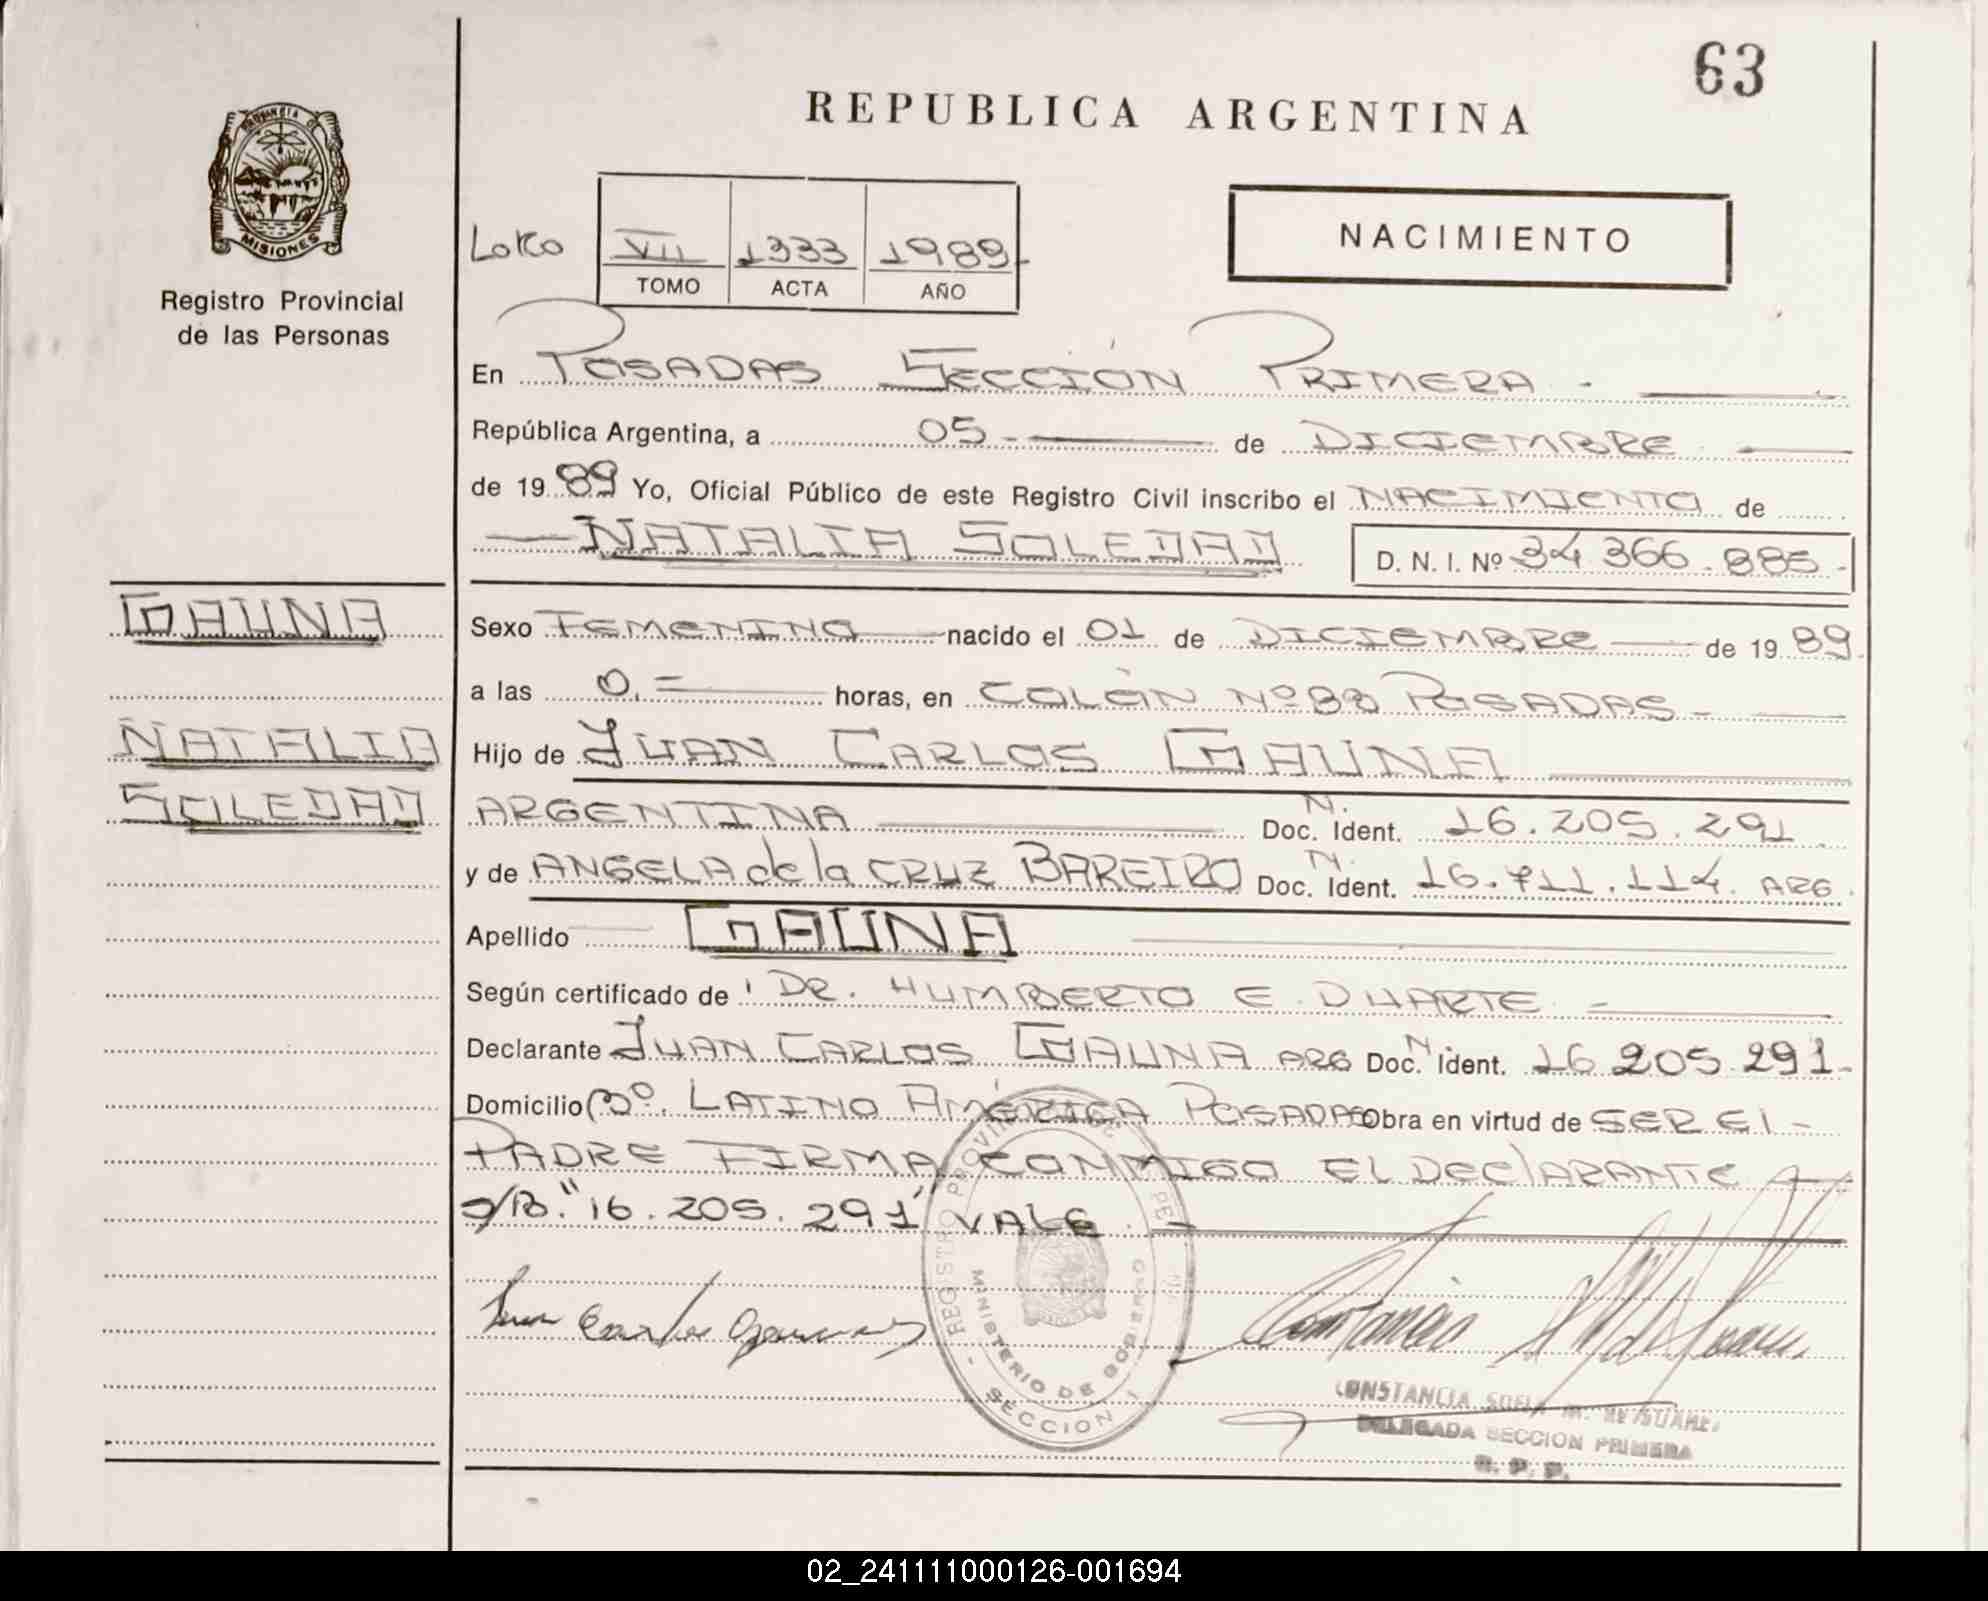 63
REPUBLICA ARGENTINA
PROVINCIA DE
MISIONES
Registro Provincial
de las Personas
VII 1333 1989
TOMO ACTA AÑO
NACIMIENTO
En POSADAS SECCIÓN PRIMERA.-
República Argentina, a 05.- de DICIEMBRE
de 1989 Yo, Oficial Público de este Registro Civil inscribo el NACIMIENTO de
NATALIA SOLEDAD D. N. I. Nº 34.366.885.-
GAUNA
NATALIA
SOLEDAD
Sexo FEMENINO nacido el 01 de DICIEMBRE de 1989.
a las 0.= horas, en COLÓN Nº 88 POSADAS.-
Hijo de JUAN CARLOS GAUNA
ARGENTINA N. Doc. Ident. 16.205.291
y de ANGELA de la CRUZ BAREIRO N. Doc. Ident. 16.711.114. ARG.
Apellido GAUNA
Según certificado de DR. HUMBERTO E. DUARTE
Declarante JUAN CARLOS GAUNA ARG N Doc. Ident. 16.205.291.-
Domicilio Bº. LATINO AMÉRICA POSADAS Obra en virtud de SER El -
PADRE FIRMA CONMIGO EL DEClARANTE
S/B. "16.205.291" VALE.-
Juan Carlos Gauna
REGISTRO PROVINCIAL DE
MINISTERIO DE GOBIERNO
- SECCION I -
Constancia
CONSTANCIA SOFIA M.
DELEGADA SECCION PRIMERA
R. P. P.
02_241111000126-001694